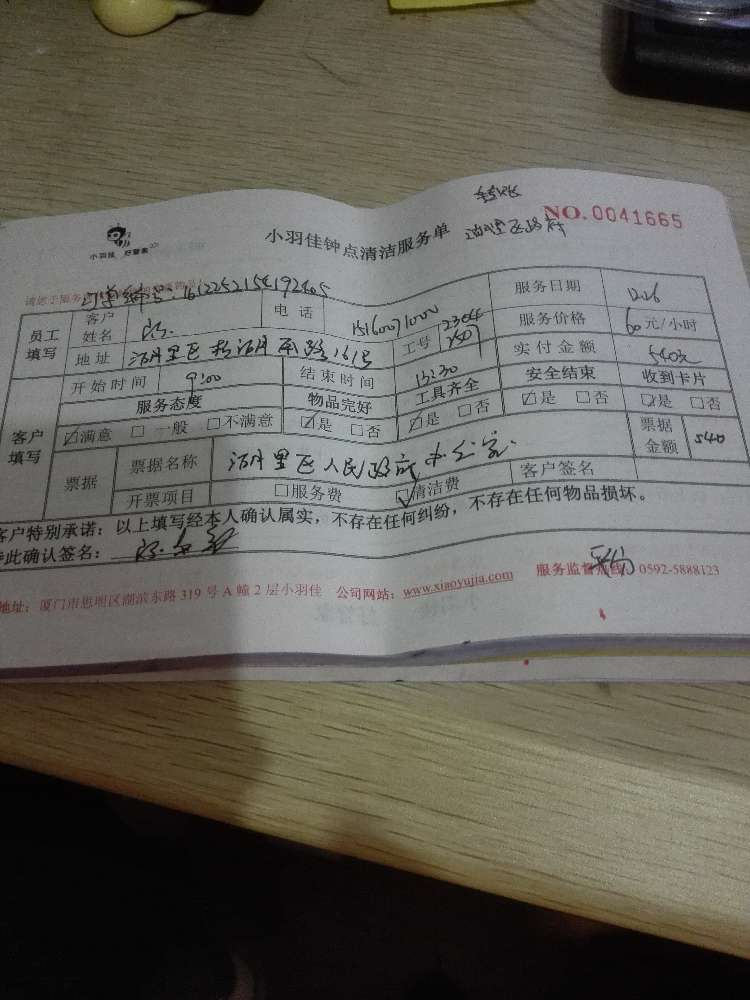 转账
NO.0041665
小羽佳 好管家
小羽佳钟点清洁服务单 湖里区政府
订单编号:161225215419240
员工填写 客户姓名 电话 服务日期 12.26
地址 湖里区枋湖南路161号 工号 2304 服务价格 60元/小时
开始时间 9:00 结束时间 13:30 实付金额 540元
服务态度 物品完好 工具齐全 安全结束 收到卡片
客户填写 ☑满意 □一般 □不满意 ☑是 □否 ☑是 □否 ☑是 □否 ☑是 □否
票据 票据名称 湖里区人民政府办公室 票据金额 540
开票项目 □服务费 ☑清洁费 客户签名
客户特别承诺:以上填写经本人确认属实,不存在任何纠纷,不存在任何物品损坏。
此确认签名:
地址:厦门市思明区湖滨东路319号A幢2层小羽佳 公司网站:www.xiaoyujia.com 服务监督热线:0592-5888123